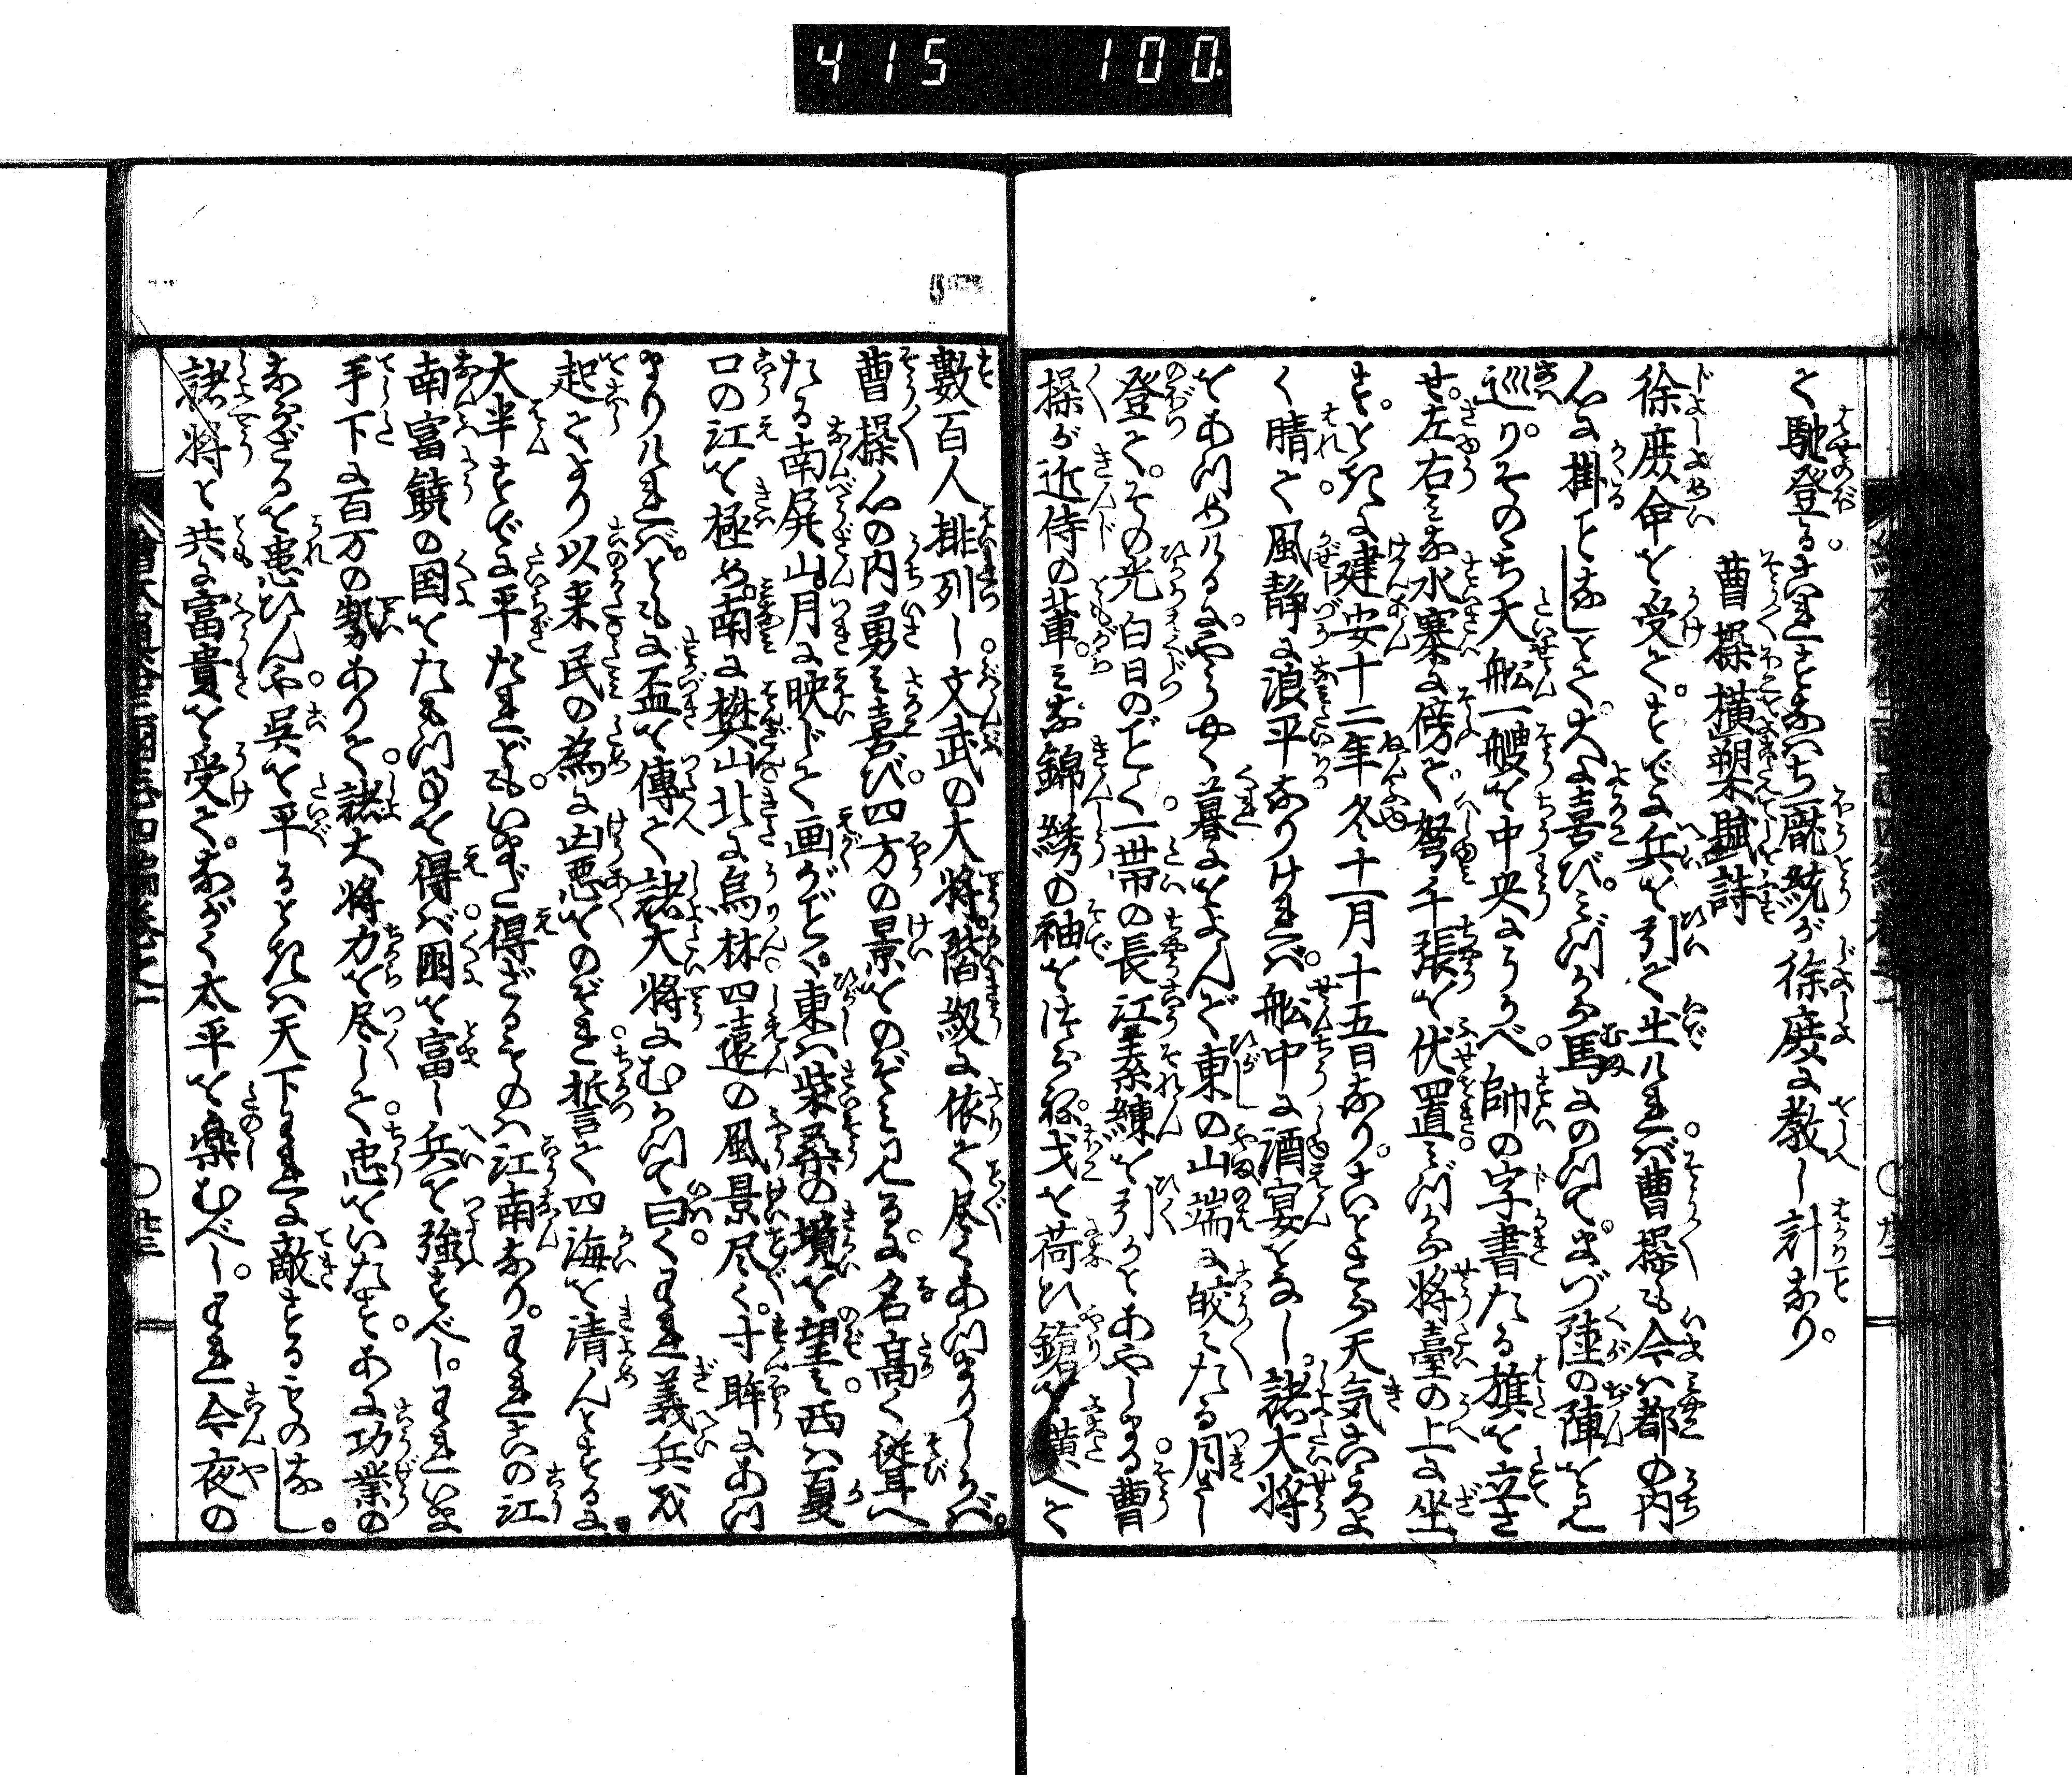 415 100.
て馳登る。これすなはち龐統が徐庶に教し計なり。
曹操横槊賦詩
徐庶命を受て。すでに兵を引て出ければ曹操も今は都の内
心に掛ことなしとて。大に喜び。みづから馬にのつて。まづ陸の陣を見
巡り。そのゝち大舩一艘を中央にうかべ。帥の字書たる旗を立さ
せ。左右みな水寨に傍て弩千張を伏置みづから将臺の上に坐
す。ときに建安十二年冬十一月十五日なり。
く晴て風静に浪平なりければ。舩中に酒宴をなし。諸大将
をあつめけるに。やうやく暮におよんで東の山端に皎々たる月さし
登て。その光白日のごとく一帯の長江素練を引かとあやしまる曹
操が近侍の輩。みな錦綉の袖をつらね。戈を荷ひ鎗を横へて
數百人排列し。文武の大将。階級に依て尽くあつまりしかば。
曹操心の内勇み喜び。四方の景をのぞみ見るに名高く聳へ
たる南屏山。月に映じて画がごとく。東は柴桑の境を望み。西は夏
口の江を極め。南に樊山北に烏林四遠の風景尽く。寸眸にあつ
まりければ。ともに盃を傳て諸大将にむかつて曰く。われ義兵を
起てより以来民の為に凶悪をのぞき。誓て四海を清んとするに。
大半すでに平たれども。いまだ得ざるものは江南なり。われこの江
南富饒の国をたもつことを得ば。国を富し兵を強すべし。われいま
手下に百万の勢ありて。諸大将力を尽して。忠をいたす。あに功業の
ならざるを患ひんや。呉を平るときは天下われに敵するものなし。
諸将と共に富貴を受て。ながく太平を楽むべし。われ今夜の